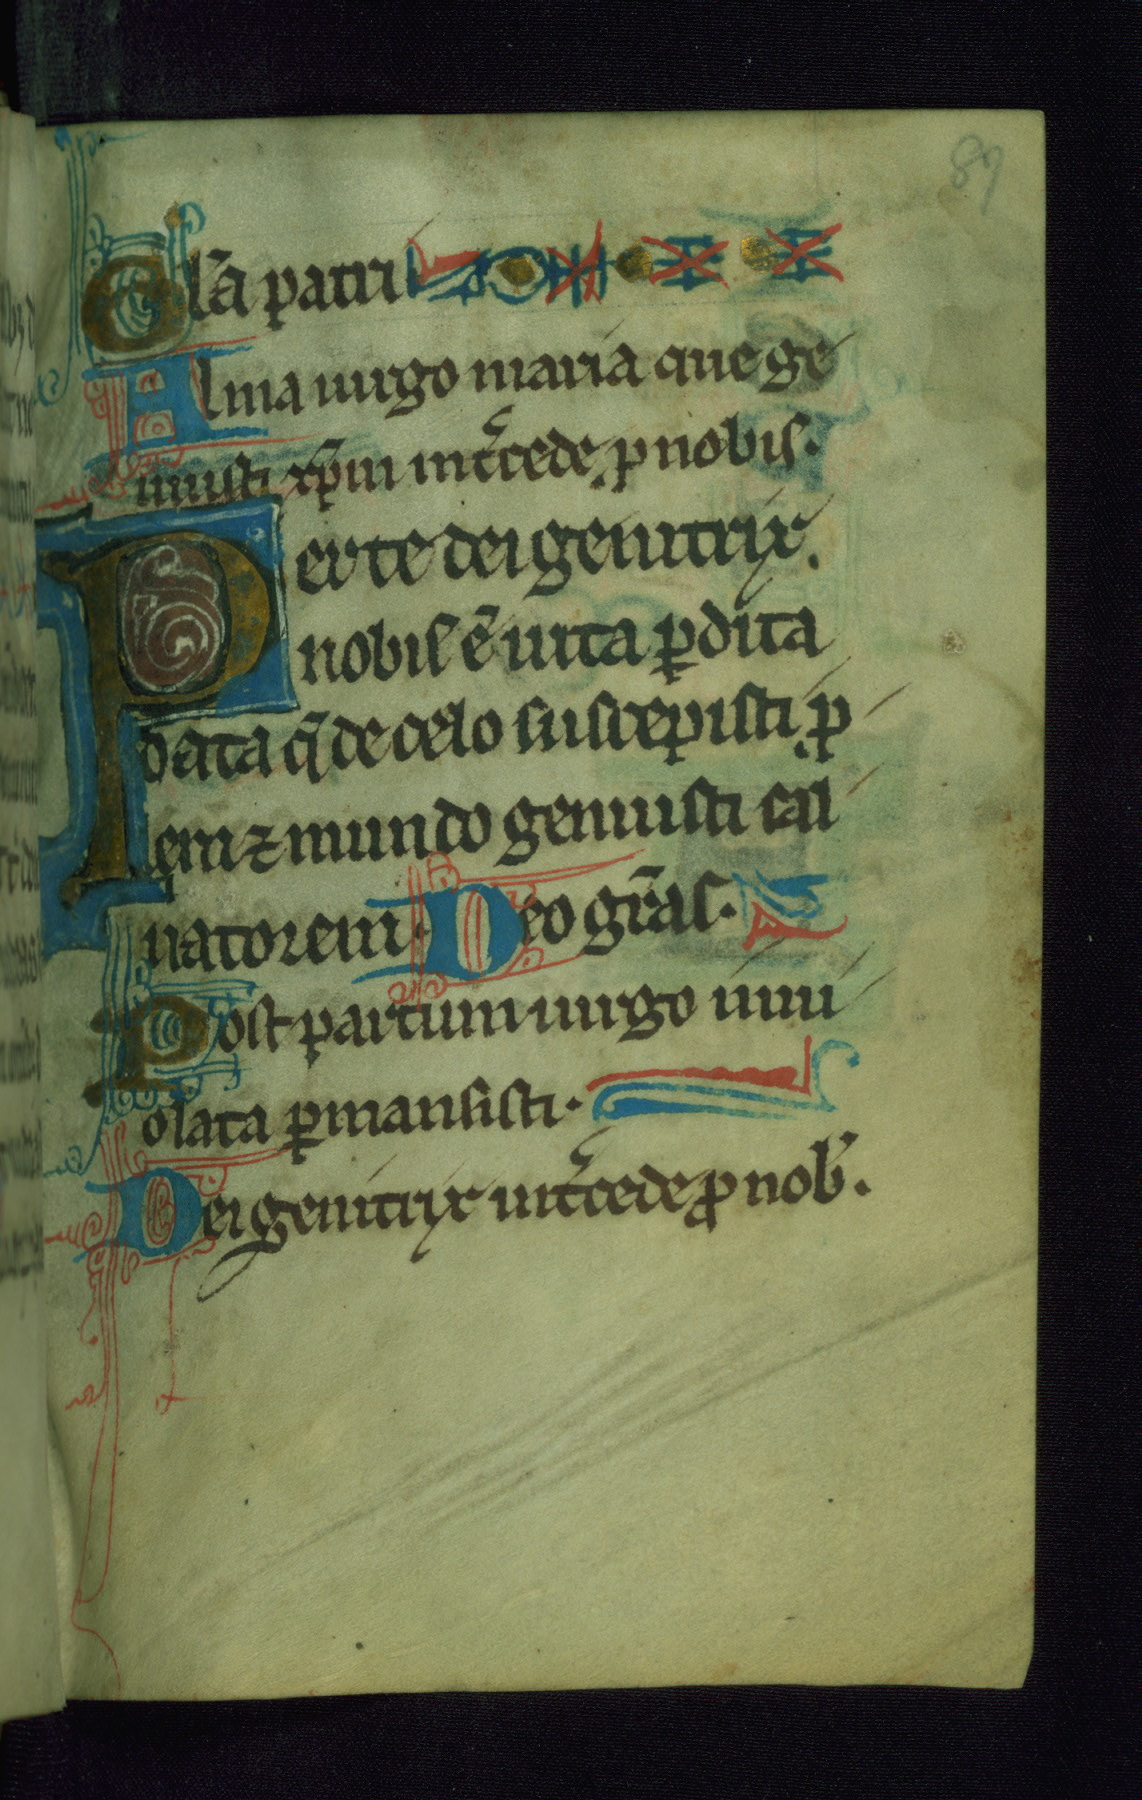 89
Gl̃a patri
Alma uirgo maria que ge
nuisti xp̃m int̉cede ꝓ nobis.
Per te dei genitrix.
nobis ẽ uita ꝑdita
data q̃ de celo suscepisti ꝓ
lem ⁊ mundo genuisti sal
uatorem. Deo gr̃as.
Post partum uirgo inui
olata ꝑmansisti.
Dei genitrix int̉cede ꝓ nob̉.